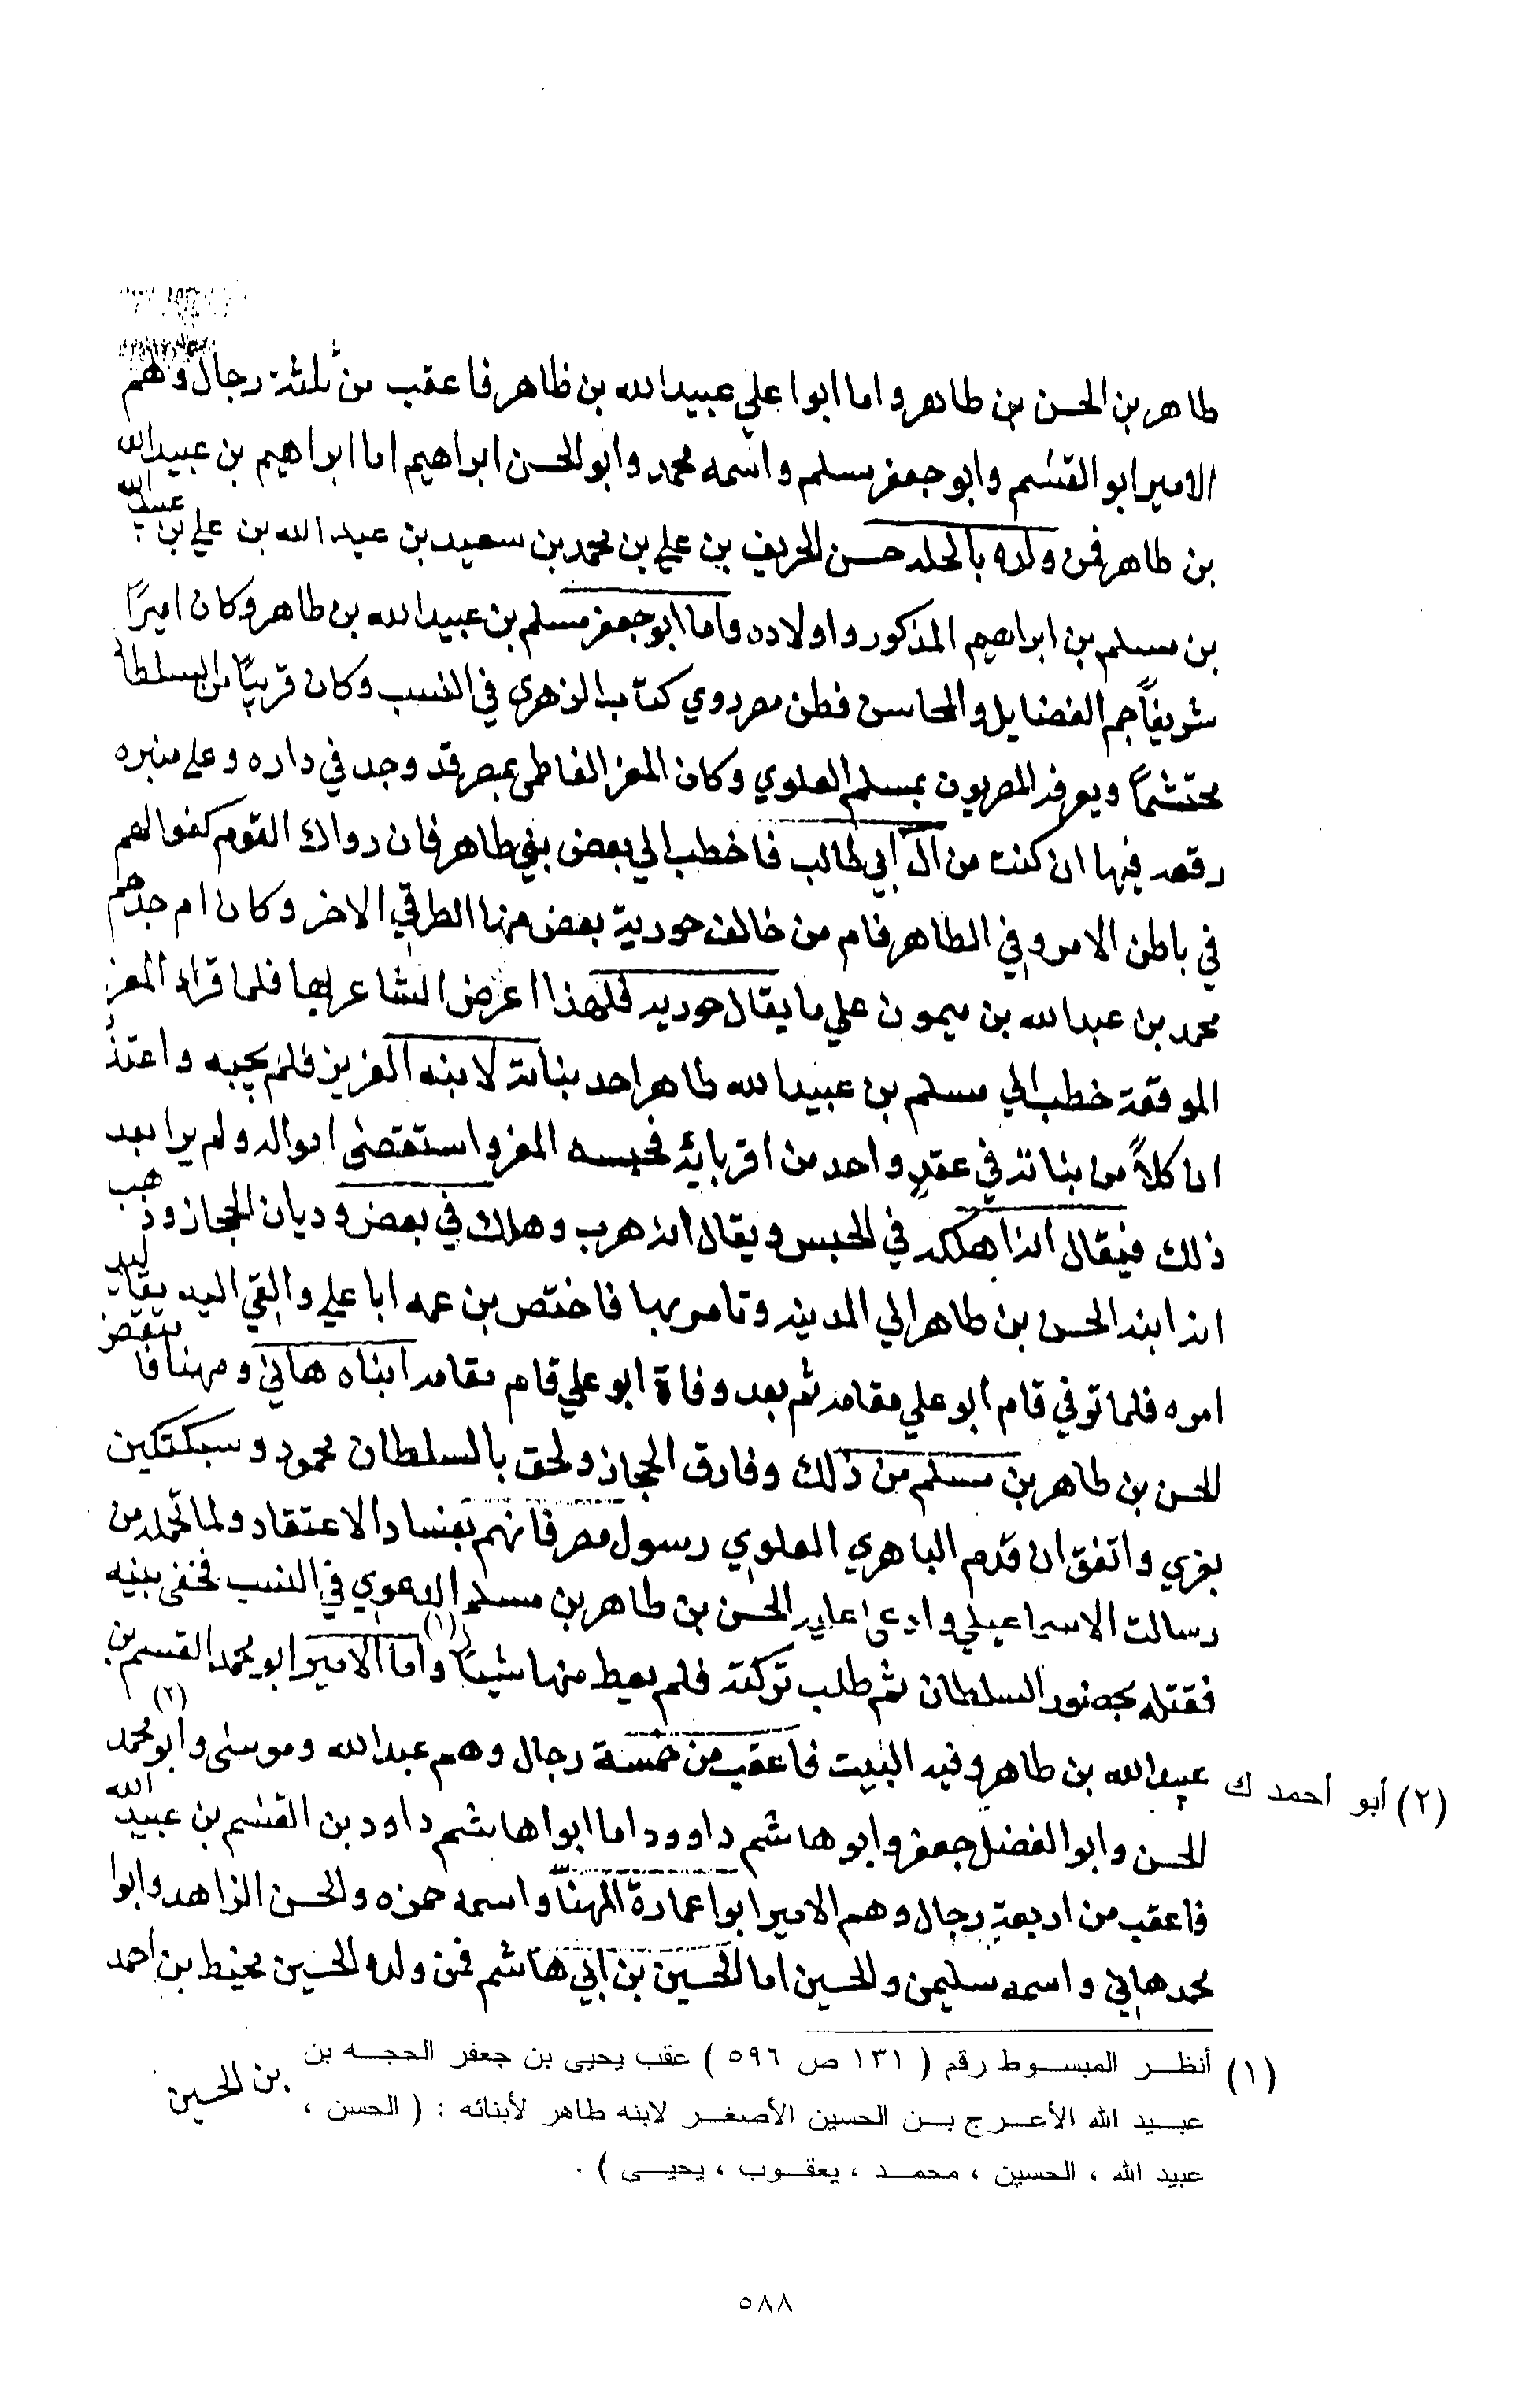 طاهر بن الحسن بن طاهر واما ابوا علي عبيد الله بن ظاهر فاعقب من ثلثة رجال وهم
الامير ابو القسم وابو جعفر مسلم واسمه محمد وابو الحسن ابراهيم اما ابراهيم بن عبيد الله
بن طاهر فمن ولده بالحله حسن الحريف بن علي بن محمد بن سعيد بن عبد الله بن علي بن عبيد الله
بن مسلم بن ابراهيم المذكور واولاده واما ابو جعفر مسلم بن عبيد الله بن طاهر وكان اميرًا
شريفاً جم الفضايل والمحاسن فطن مصر روي كتاب الزهري في النسب وكان قريبًا من السلطان
محتشمًا ويعرفه المصريون بمسلم العلوي وكان المعز الفاطمي بمصر قد وجد في داره وعلى منبره
رقعه فيها ان كنت من ال ابي طالب فاخطب الي بعض بني طاهر فان رواك القوم كفوا لهم
في باطن الامر وفي الظاهر فام من خالف حورية بعض منها الطرفي الاخر وكان ام جدهم
محمد بن عبد الله بن ميمون علي ما يقال حوريه فلهذا اعرض الشاعر بها فلما قراء المعز
الموقعة خطب الي مسلم بن عبيد الله طاهر احد بناته لابنه العزيز فلم يجبه واعتذ
ان كلاً من بناته في عقدٍ واحد من اقربايه فحبسه المعز واستقصى امواله ولم يرا بعد
ذلك فيقال انه اهلكه في الحبس ويقال انه هرب وهلك في بعض وديان الحجاز وذهب
انه ابنه الحسن بن طاهر الي المدينه وتامر بها فاختص بن عمه ابا علي والقي اليه يقاليد
امره فلما توفي قام ابو علي مقامه ثم بعد وفاة ابو علي قام مقامه ابناه هاني ومهنا فانتقض
الحسن بن طاهر بن مسلم من ذلك وفارق الحجاز ولحق بالسلطان محمود وسبكتكين
بغزي واتفق ان قدم الباهري العلوي رسول مصر فاتهم بفساد الاعتقاد ولما تحمله من
رسالت الاسماعيلي وادعى عليه الحسن بن طاهر بن مسلم الدعوي في النسب فخفى بينه
فقتله بحضور السلطان ثم طلب تركته فلم يعط منها شيئًا (١) واما الامير ابو محمد القسم بن
عبيد الله بن طاهر وفيه البيت فاعقب من خمسة رجال وهم عبد الله وموسى وابو محمد (٢)
(٢) أبو أحمد ك
الحسن وابو الفضل جعفر وابو هاشم داوود اما ابوا هاشم داود بن القسم بن عبيد الله
فاعقب من اربعةِ رجال وهم الامير ابوا عمارة المهنا واسمه حمزه والحسن الزاهد وابوا
محمد هاني واسمه سليمن والحسين اما الحسين بن ابي هاشم فمن ولده الحسين مخيط بن احمد
بن الحسين
(١) أنظر المبسوط رقم ( ١٣١ ص ٥٩٦ ) عقب يحيى بن جعفر الحجه بن
عبيد الله الأعرج بن الحسين الأصغر لابنه طاهر لأبنائه : ( الحسن ،
عبيد الله ، الحسين ، محمد ، يعقوب ، يحيى ) .
٥٨٨